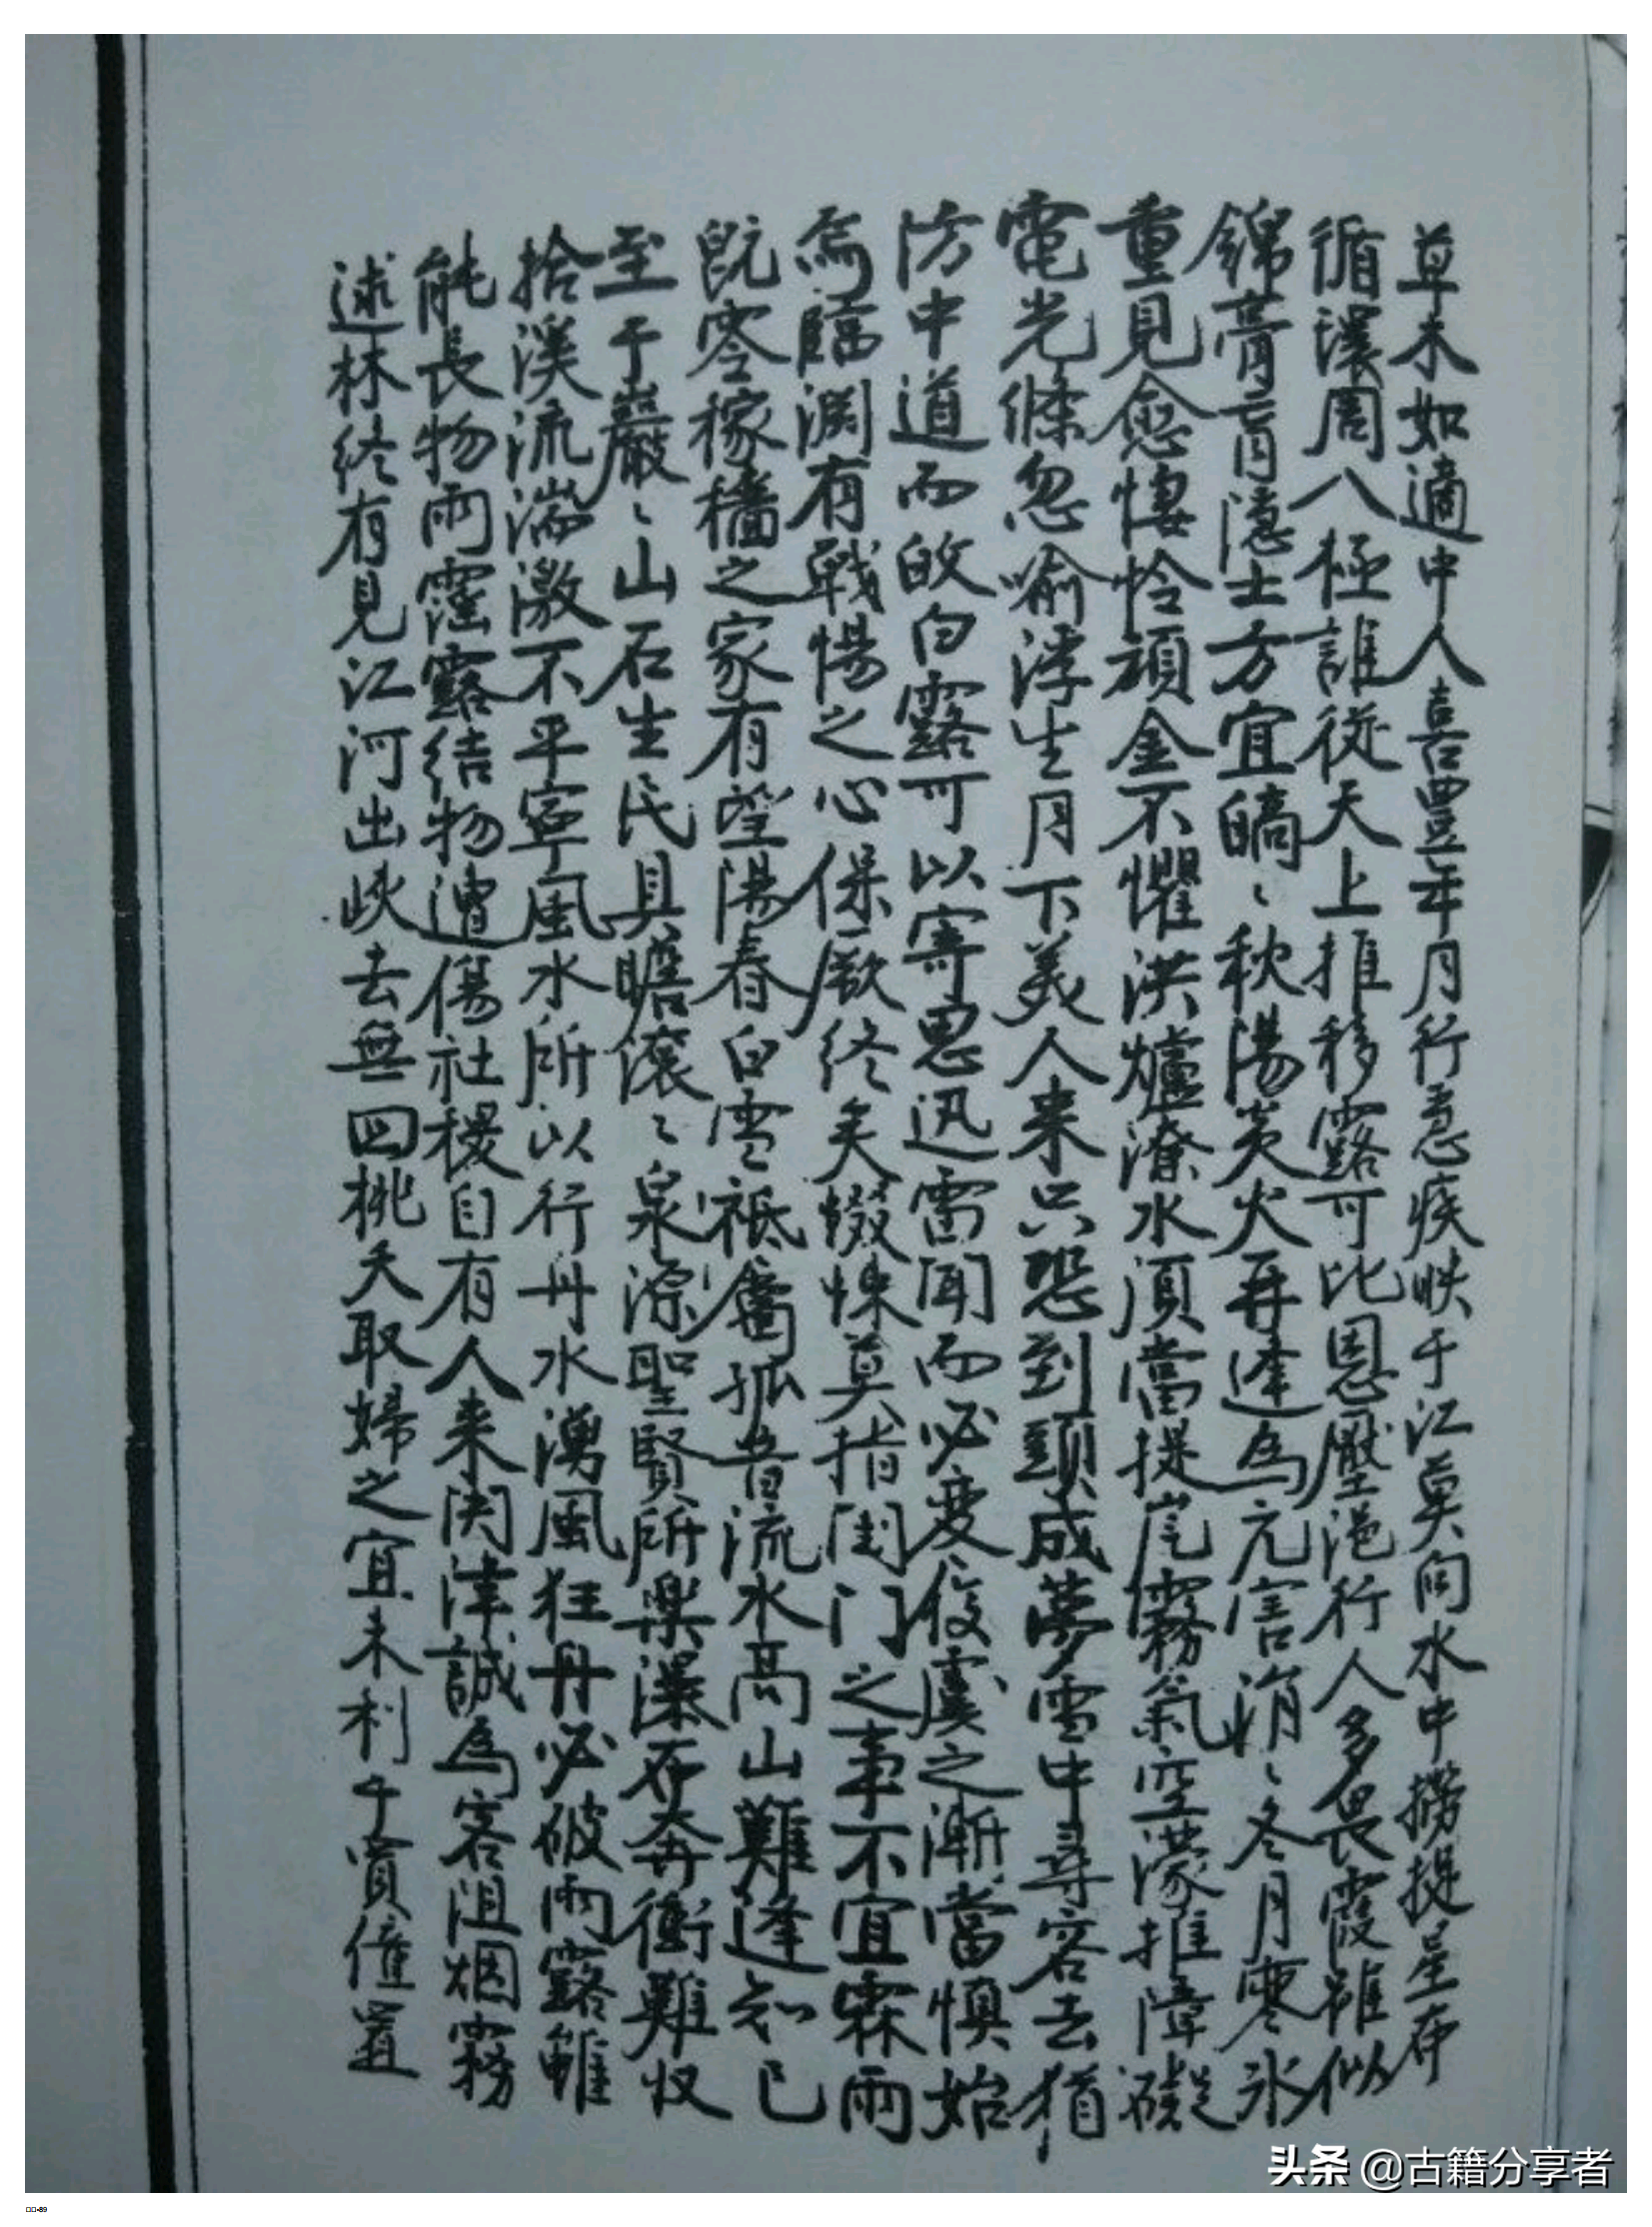 草木如適中人喜豐年月行急疾昳于江莫向水中撈提星奔
循環周八極誰從天上推移露可比恩壓浥行人多畏霞雖似
錦膏肓隱士方宜暠〻秋陽炎火再逢為亢害涓〻冬月寒氷
重見愈悽怜頑金不懼洪爐潦水須當提崖霧氣空濛推障礙
電光倏忽喻浮生月下美人来只恐到頭成夢雪中尋客去猶
防中道而皎白露可以寄思迅雷聞而必变優虞之漸當慎始
焉臨淵有戰惕之心保厥終矣蝃蝀莫指閨门之事不宜霖雨
既零稼穡之家有望陽春白雪祗為孤音流水高山難逢知己
至于巖〻山石生民具瞻滚〻泉源聖賢所樂瀑布奔衝難收
拾溪流湍激不平寧風水所以行舟水湧風狂舟必破雨露雖
能長物雨霪露結物遭傷社稷自有人来関津誠為客阻烟霧
述林終有見江河出峡去無回桃夭取婦之宜未利于買僮置
头条 @古籍分享者